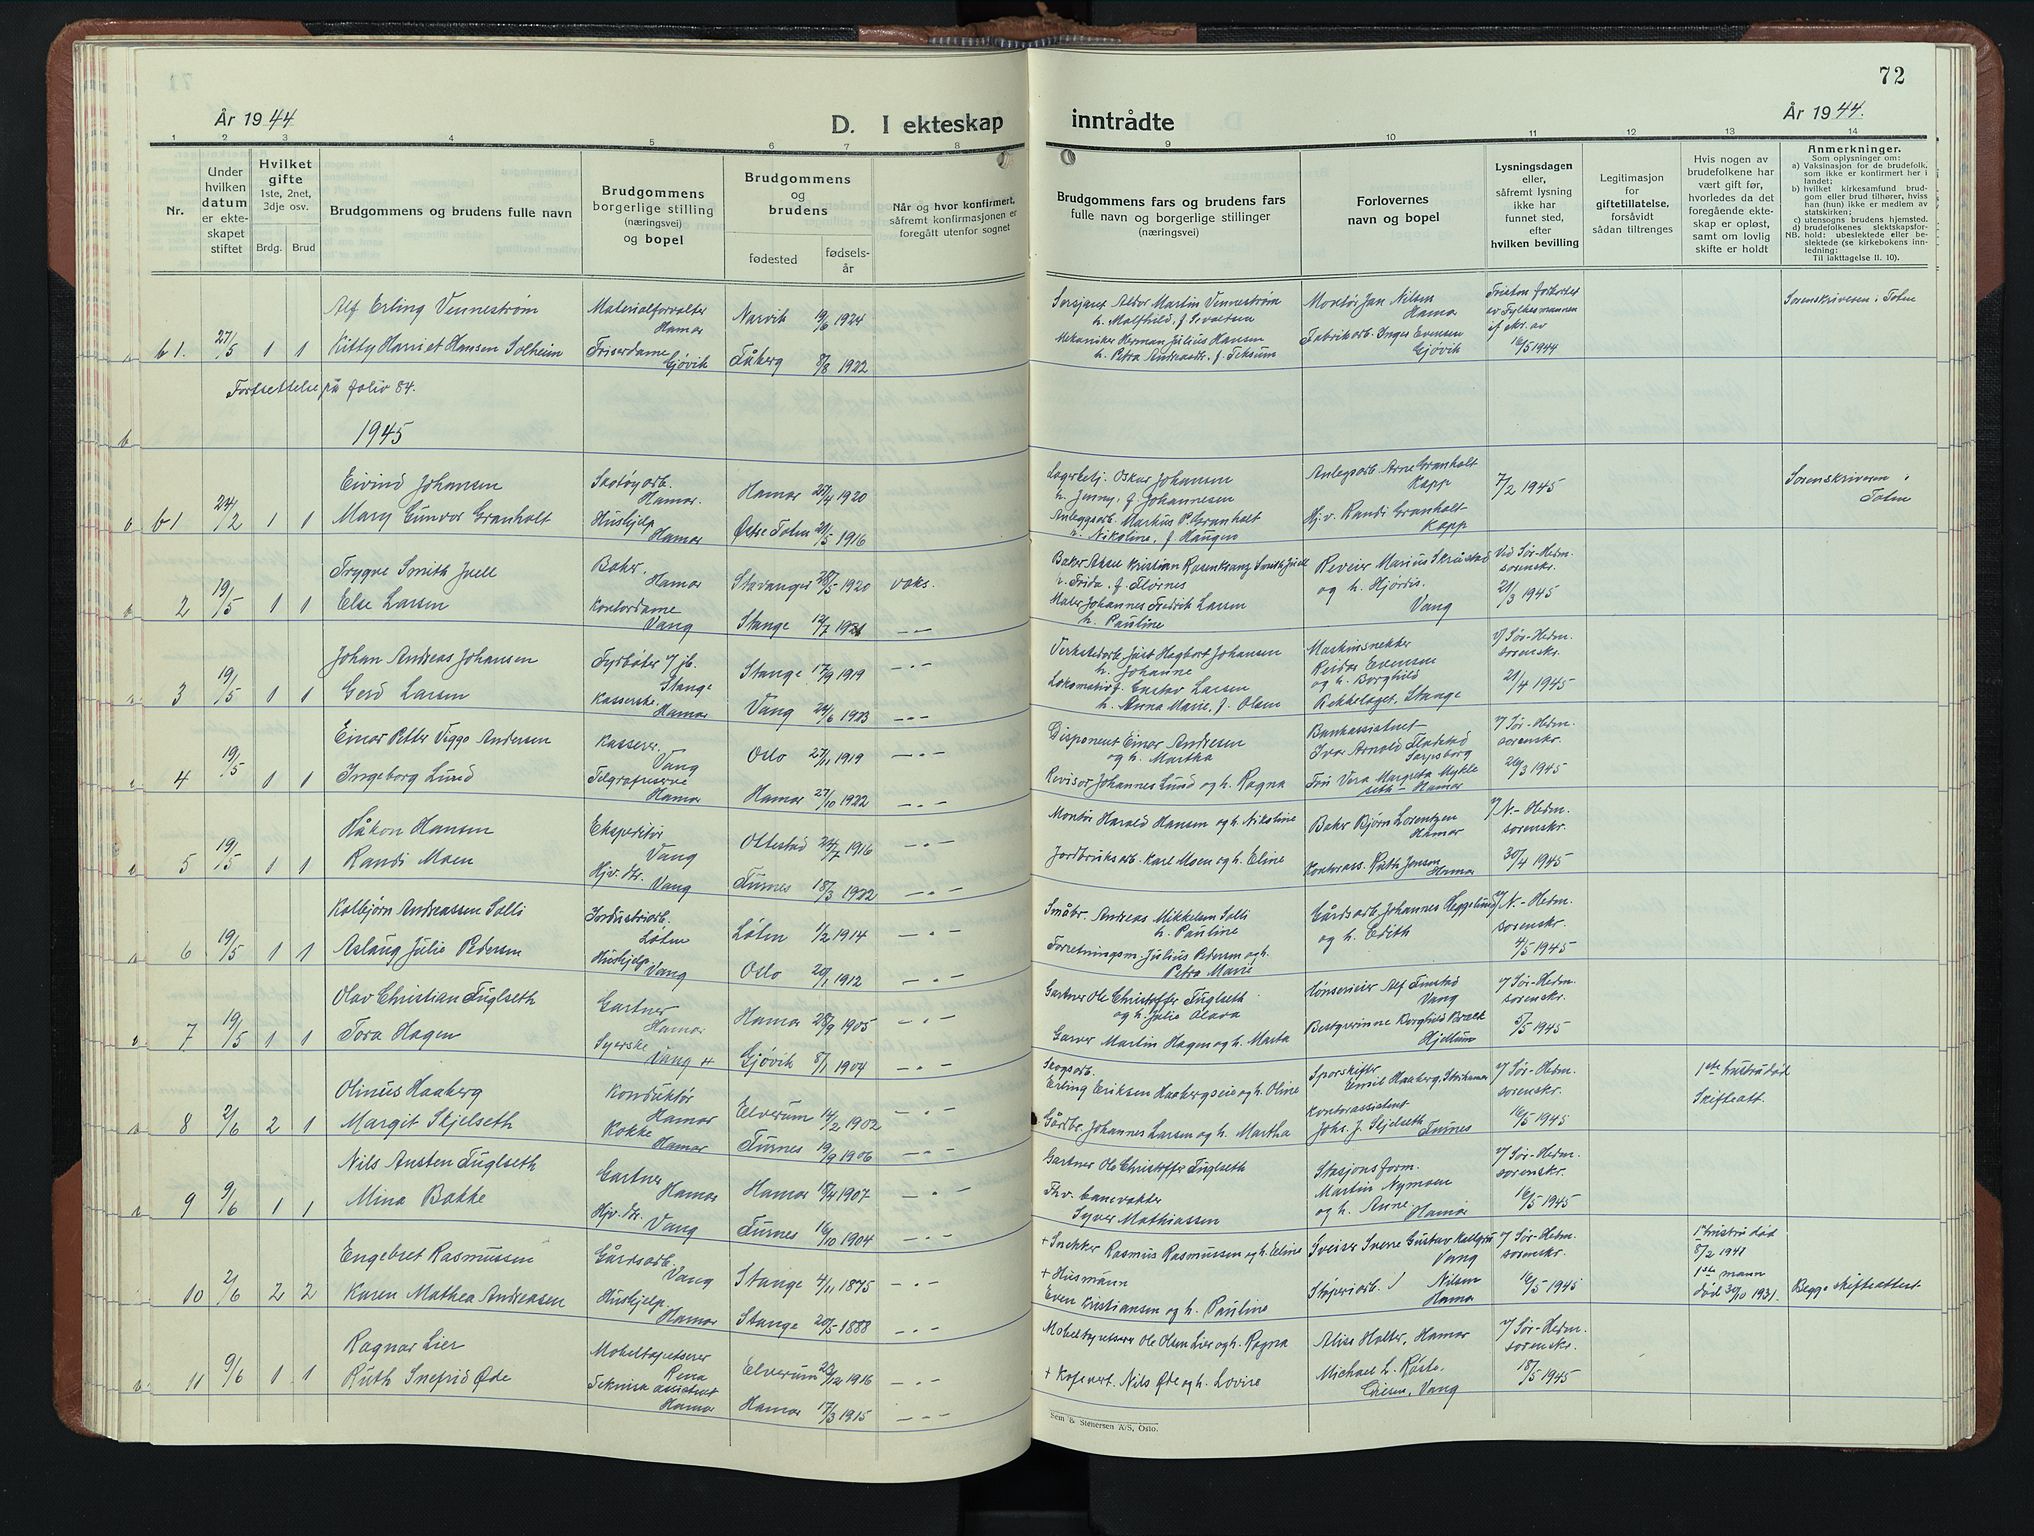 72
År 1944
D. I ekteskap inntrådte
År 1944.
1 2 3 4 5 6 7 8 9 10 11 12 13 14
Nr.
Under hvilken datum er ekteskapet stiftet
Hvilket gifte
1ste, 2net, 3dje osv.
Brdg. Brud
Brudgommens og brudens fulle navn
Brudgommens borgerlige stilling (næringsvei) og bopel
Brudgommens og brudens
fødested
fødselsår
Når og hvor konfirmert, såfremt konfirmasjonen er foregått utenfor sognet
Brudgommens fars og brudens fars fulle navn og borgerlige stillinger (næringsvei)
Forlovernes navn og bopel
Lysningsdagen eller, såfremt lysning ikke har funnet sted, efter hvilken bevilling
Legitimasjon for giftetillatelse, forsåvidt sådan tiltrenges
Hvis nogen av brudefolkene har vært gift før, hvorledes da det foregående ekteskap er opløst, samt om lovlig skifte er holdt
Anmerkninger.
Som oplysninger om:
a) Vaksinasjon for de brudefolk, som ikke er konfirmert her i landet;
b) hvilket kirkesamfund brudgom eller brud tilhører, hviss han (hun) ikke er medlem av statskirken;
c) utensogns brudens hjemsted.
d) brudefolkenes slektskapsforhold: ubeslektede eller beslektede (se kirkebokens innledning:
NB. Til iakttagelse II. 10).
b 1. 27/5 1 1
Alf Erling Vennestrøm
Kitty Harriet Hansen Solheim
Materialforvalter
Hamar
Friserdame
Gjøvik
Narvik 19/6 1924
Fåberg 8/8 1922
Martin Vennestrøm
Mekaniker Herman Julius Hansen
Montør Jan Nilsen
Hamar
Fabrikarb. Inger Evensen
Gjøvik
av Fylkesmannen
16/5 1944
Sorenskriveren i Toten
Fortsettelse på folio 84.
1945
b 1 24/2 1 1
Eivind Johansen
Mary Gunvor Granholt
Skotøyarb.
Hamar.
Hushjelp
Hamar
Hamar 1920
Østre Toten 21/5 1916
Lagerbetj. Oskar Johansen
h. Jenny, f. Johannesen
Anleggsarb. Markus P. Granholt
h. Nikoline, f. Haugen
Anlegsarb. Arne Granholt
Kapp
Hj.v. Randi Granholt
Kapp
7/2 1945
Sorenskriveren i
Toten
2 19/5 1 1
Trygve Smith Juell
Else Larsen
Baker.
Hamar
Kontordame
Vang
Stavanger 28/5 1920 vaks.
Stange 12/7 1921 — " —
Baker Aksel Kristian Rosenkranz Smith Juell
h. Frida, f. Flørnes
Maler Johannes Fredrik Larsen
h. Pauline
Marius Skråstad
og h. Hjørdis.
Vang
Ved Sør-Hedm.
sorenskr.
21/3 1945
3 19/5 1 1
Johan Andreas Johansen
Gerd Larsen
Fyrbøter v/ jb.
Stange
Kasserske
Hamar
Stange 17/9 1919 — " —
Vang 24/6 1923 — " —
Verkstedarb. Just Hagbart Johansen
h. Johanne
Lokomotivf. Gustav Larsen
h. Anna Marie, f. Olsen
Maskinsnekker
Reidar Evensen
og h. Borghild
Bekkelaget, Stange
v/ Sør-Hedm.
sorenskr.
21/4 1945
4 19/5 1 1
Einar Petter Viggo Andersen
Ingeborg Lund
Kasserer
Vang
Telgrafistinne
Hamar
Oslo 27/11 1919 — " —
Hamar 27/10 1922 — " —
Disponent Einar Andresen
og h. Martha
Revisor Johannes Lund og h. Ragna
Bankassistent
Ivar Arnold Fladstad
Sarpsborg
Frk Vera Margreta Mykle
seth - Hamar
v/ Sør-Hedm.
sorenskr.
26/3 1945
5 19/5 1 1
Håkon Hansen
Randi Moen
Ekspeditør
Vang
Hjv. dtr.
Vang
Ottestad 24/7 1916 — " —
Furnes 18/3 1922 — " —
Montør Harald Hansen og h. Nikoline
Jordbruksarb. Karl Moen og h. Eline
Baker Bjørn Lorentzen
Hamar
Kontorass. Ruth Jonson
Hamar
v/ N.-Hedm.
sorenskr.
30/4 1945
6 19/5 1 1
Kolbjørn Andreassen Solli
Aslaug Julie Pedersen
Industriarb.
Løten
Hushjelp
Vang
Løten 1/2 1914 — " —
Oslo 20/1 1912 — " —
Småbr. Andreas Mikkelsen Solli
h. Pauline
Forretningsm. Julius Pedersen og h.
Petra Marie
Gårdsarb. Johannes Heggelund
og h. Edith
v/ N.-Hedm.
sorenskr.
4/5 1945
7 19/5 1 1
Olav Christian Fuglseth
Tora Hagen
Gartner
Hamar
Syerske
Vang +
Hamar 28/9 1905 — " —
Gjøvik 8/1 1904 — " —
Gartner Ole Christoffer Fuglseth
og h. Julie Olava
Garver Martin Hagen og h. Marta
Hønserieier Alf Finstad
Vang
Bestyrerinne Borghild
Hjellum
v/ Sør-Hedm.
sorenskr.
5/5 1945
8 2/6 2 1
Olinus Haaberg
Margit Skjelseth
Konduktør
Hamar
Kokke
Hamar
Elverum 14/2 1902 — " —
Furnes 19/9 1906 — " —
Skogsarb.
Erling Eriksen Haabergseie og h. Oline
Gårdbr. Johannes Larsen og h. Martha
Sporskifter
Emil Haaberg,
Kontorassistent
Johs. J. Skjelseth
Furnes
v/ Sør-Hedm.
sorenskr.
16/5 1945
1ste hustru død
Skifteatt.
9 9/6 1 1
Nils Austen Fuglseth
Mina Bakke
Gartner
Hamar
Hjv. dtr.
Vang
Hamar 18/4 1907 — " —
Furnes 16/10 1904 — " —
Gartner Ole Christoffer Fuglseth
Fhv. banevakter
Syver Mathiassen
Stasjonsform.
Martin Nymoen
og h. Anne
Hamar
v/ Sør-Hedm.
sorenskr.
16/5 1945
10 2/6 2 2
Engebret Rasmussen
Karen Mathea Andreasen
Gårdsarb.
Vang
Hushjelp
Hamar
Stange 4/11 1875 — " —
Stange 20/5 1888 — " —
+ Snekker Rasmus Rasmussen og h. Eline
+ Husmann
Even Kristiansen og h. Pauline
Sveiser Sverre Gustav
Vang
Støperiarb. J Nilsen
Hamar
v/ Sør-Hedm.
sorenskr.
16/5 1945
1ste hustru død
8/2 1941
1ste mann
død 30/10 1931.
Begge skifteattest
11 9/6 1 1
Ragnar Lier
Ruth Snefrid Øde
Møbeltapetserer
Rena
Teknisk assistent
Hamar
Elverum 22/12 1916 — " —
Hamar 17/3 1915 — " —
Møbeltapetserer Ole Olsen Lier og h. Ragna
+ Kafevert. Nils Øde og h. Lovise
Alise Holter, Hamar
Michael L. Røste
Vang
v/ Sør-Hedm.
sorenskr.
18/5 1945
Sem & Stenersen A/S, Oslo.